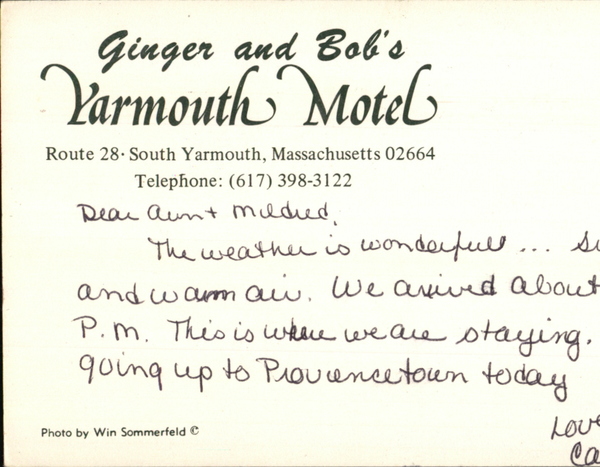 Ginger and Bob's
Yarmouth Motel
Route 28· South Yarmouth, Massachusetts 02664
Telephone: (617) 398-3122
Dear Aunt Mildred,
The weather is wonderfull ...
and warm air. We arrived about
P.M. This is where we are staying.
going up to Provencetown today
Love
Photo by Win Sommerfeld ©
Ca